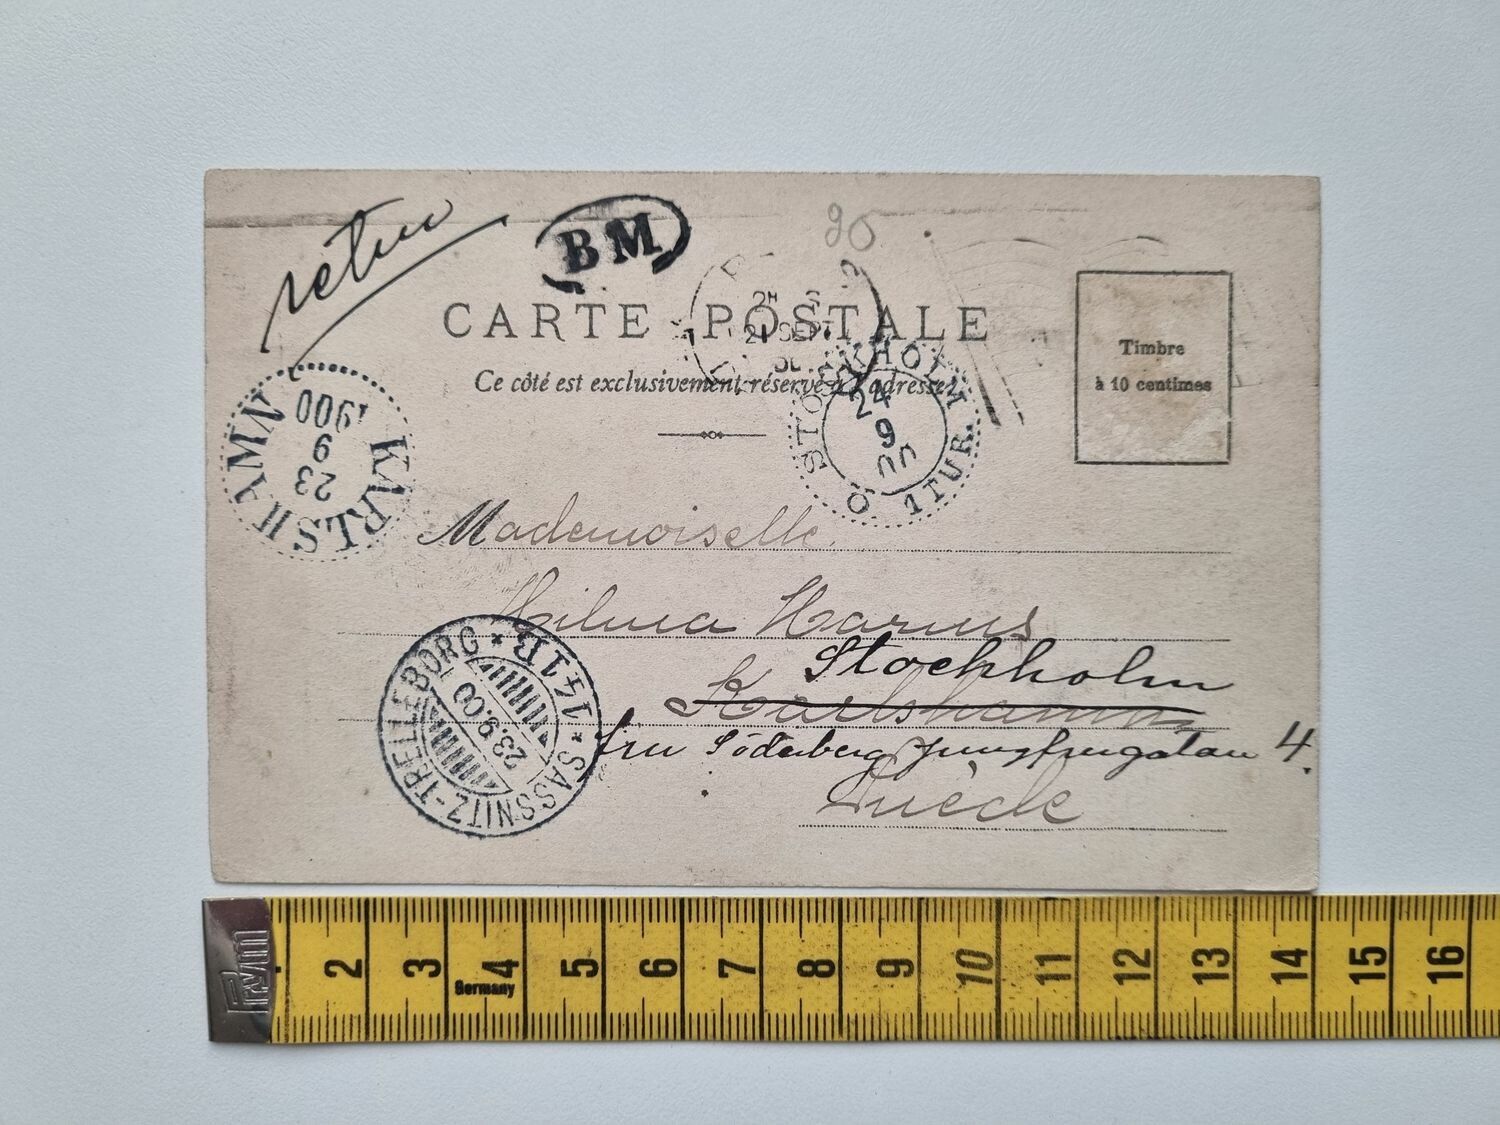 BM
90
CARTE POSTALE
21 SEPT
Ce côté est exclusivement réservé à l'adresse
Timbre
à 10 centimes
KARLSHAMN
23
9
1900
STOCKHOLM
24
9
00
1 TUR.
Mademoiselle
Hilma Harms
Stockholm
Karlshamn
fru Söderberg Jungfrugatan 4.
Suède
SASSNITZ-TRELLEBORG * 141B *
23.9.00
2 3 4 5 6 7 8 9 10 11 12 13 14 15 16
Germany